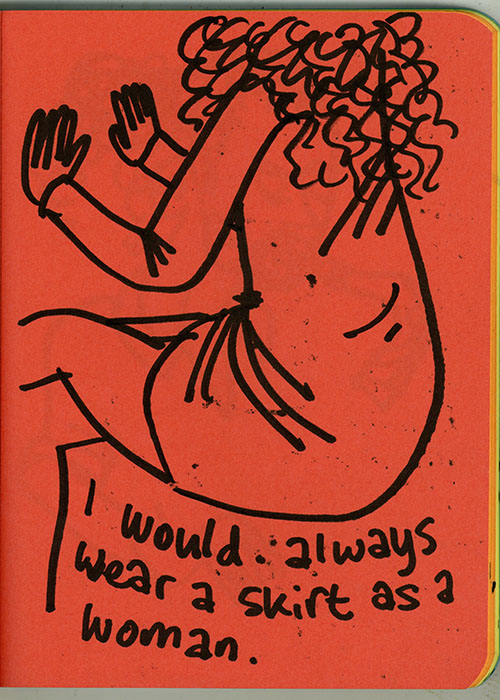 I would. always
wear a skirt as a
woman.